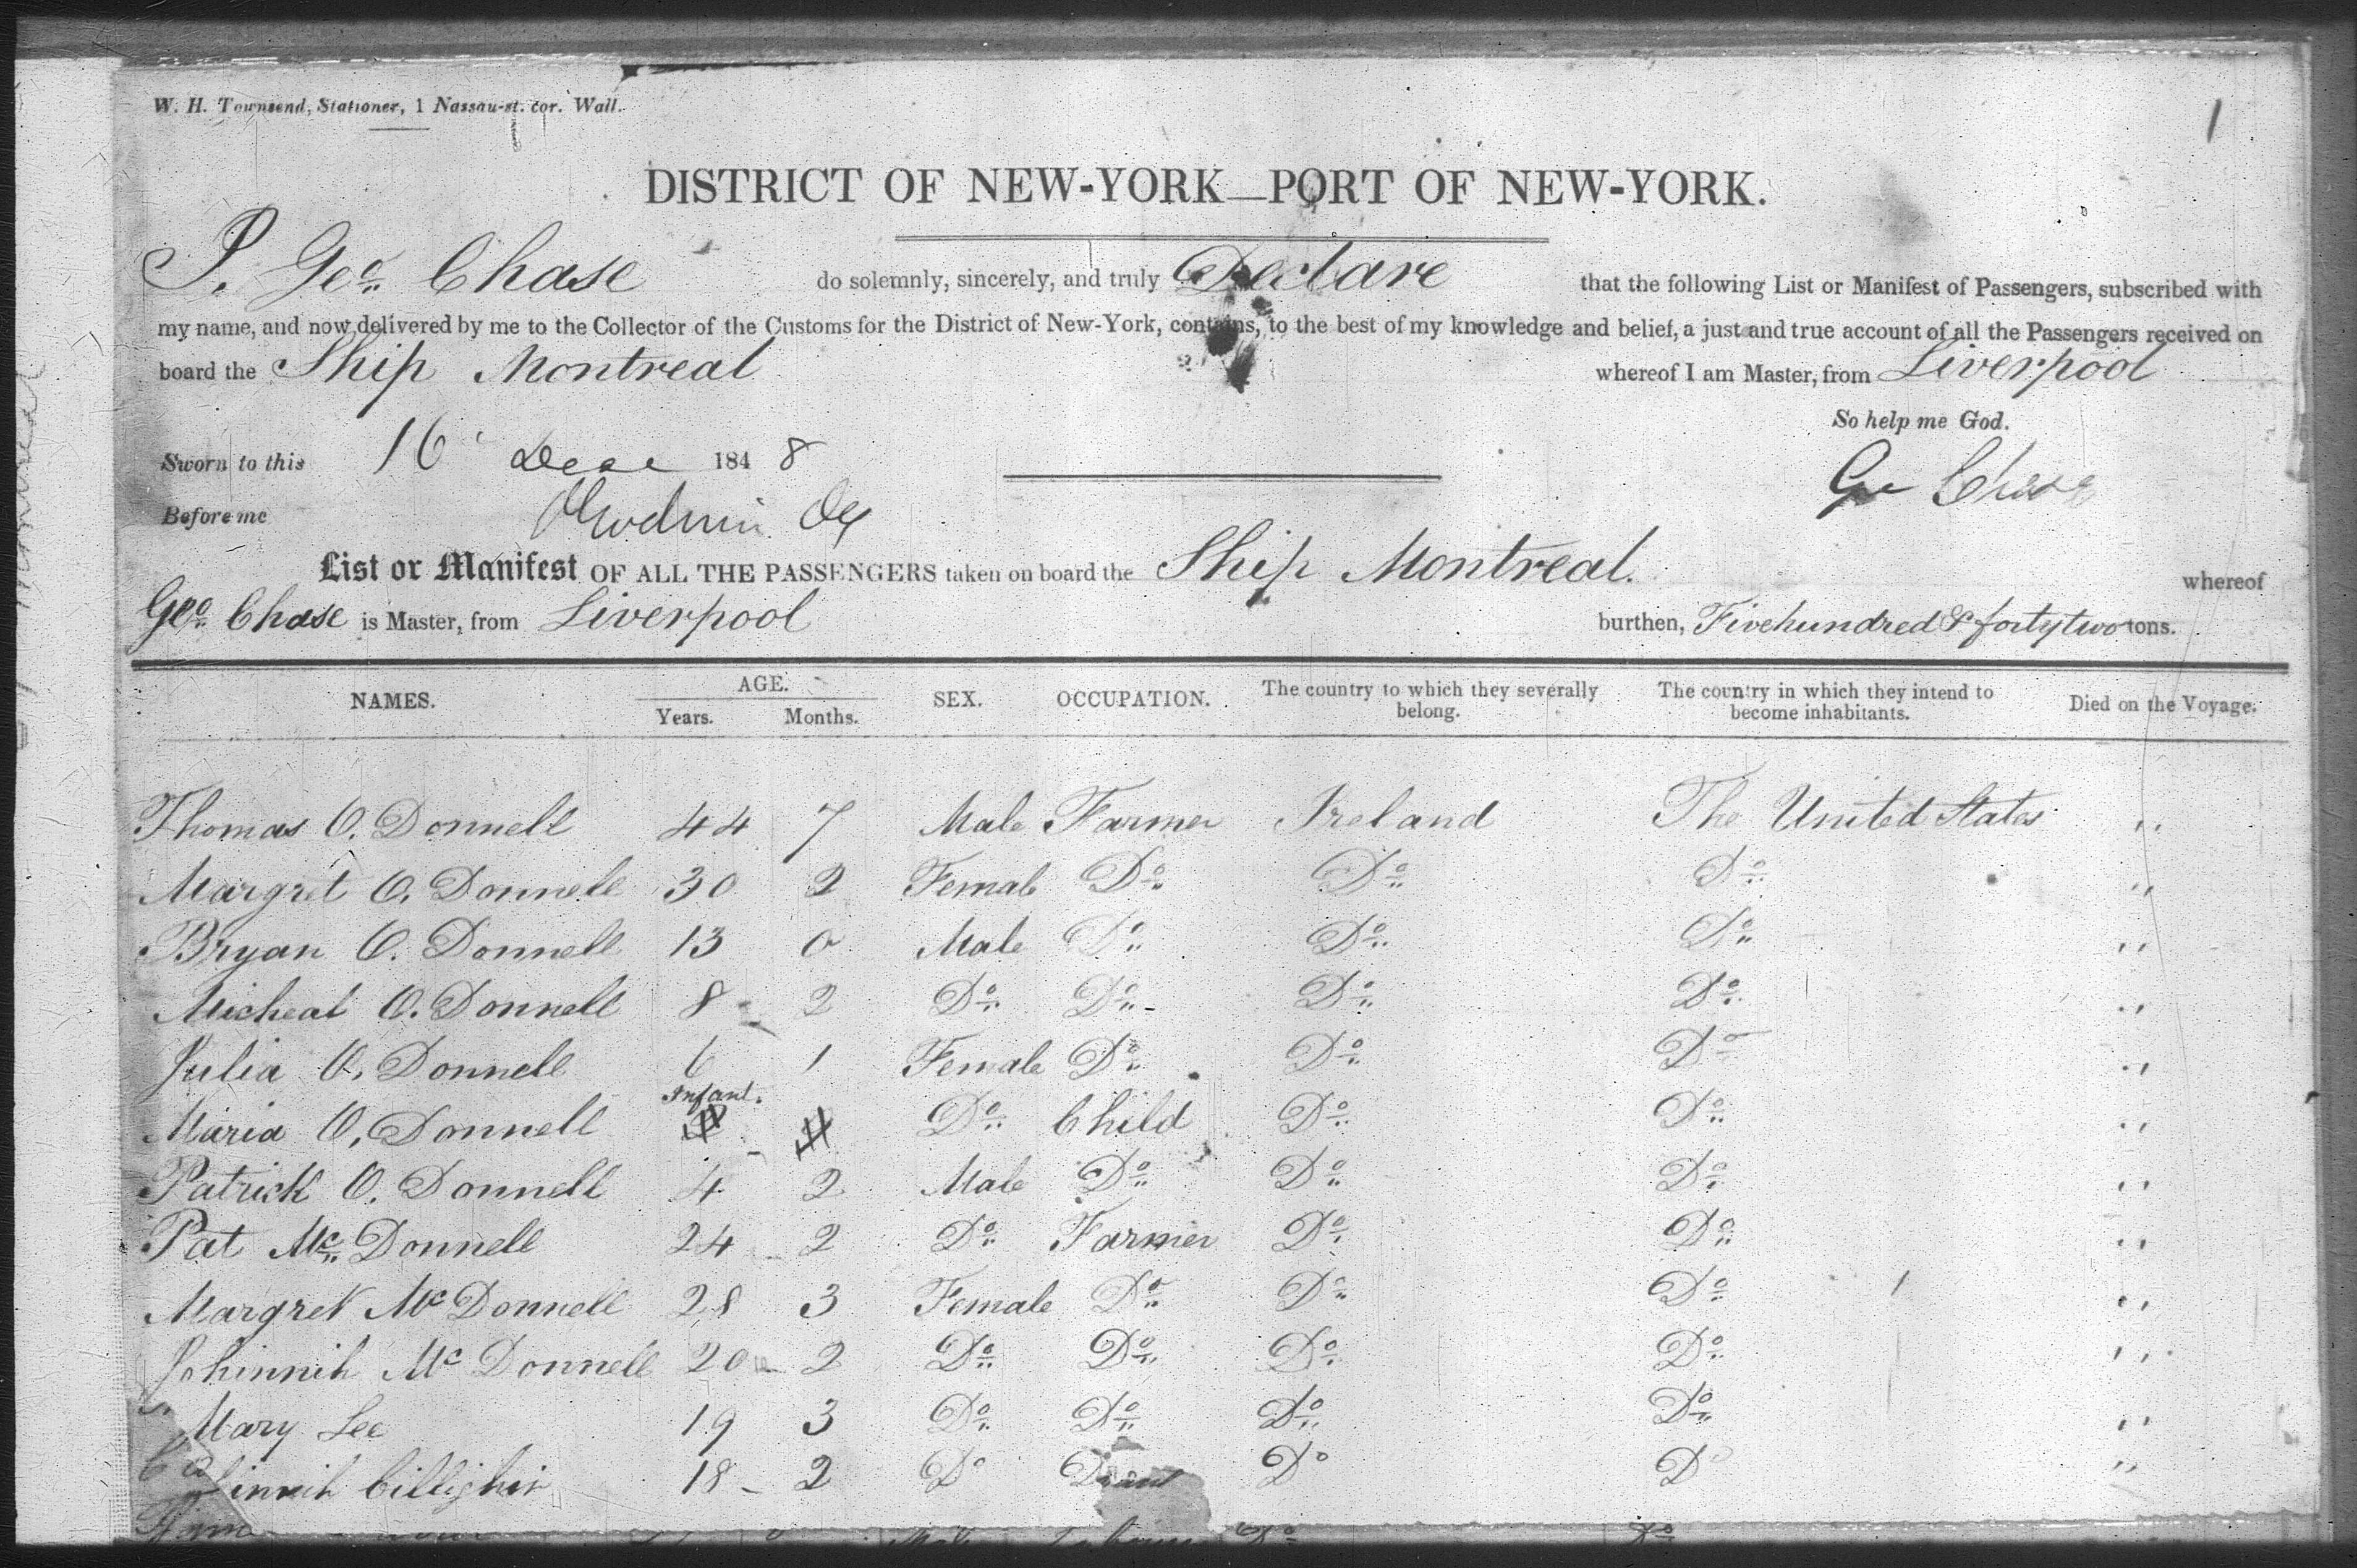 W. H. Townsend, Stationer, 1 Nassau-st. cor. Wall.
1
DISTRICT OF NEW-YORK—PORT OF NEW-YORK.
I. Geo. Chase do solemnly, sincerely, and truly Declare that the following List or Manifest of Passengers, subscribed with
my name, and now delivered by me to the Collector of the Customs for the District of New-York, contains, to the best of my knowledge and belief, a just and true account of all the Passengers received on
board the Ship Montreal whereof I am Master, from Liverpool
So help me God.
Sworn to this 16 Dece 1848
Geo Chase
Before me
List or Manifest OF ALL THE PASSENGERS taken on board the Ship Montreal. whereof
Geo. Chase is Master, from Liverpool burthen, Fivehundred & fortytwo tons.
NAMES. AGE. SEX. OCCUPATION. The country to which they severally belong. The country in which they intend to become inhabitants. Died on the Voyage.
Years. Months.
Thomas O. Donnell 44 7 Male Farmer Ireland The United States ,,
Margret O. Donnell 30 2 Female Do Do Do ,,
Bryan O. Donnell 13 0 Male Do Do Do ,,
Micheal O. Donnell 8 2 Do Do Do Do ,,
Julia O. Donnell 6 1 Female Do Do Do ,,
Maria O. Donnell Infant. Do Child Do Do ,,
Patrick O. Donnell 4 2 Male Do Do Do ,,
Pat Mc Donnell 24 2 Do Farmer Do Do ,,
Margret Mc Donnell 28 3 Female Do Do Do ,,
Johinnih Mc Donnell 20 2 Do Do Do Do ,,
Mary Lee 19 3 Do Do Do Do ,,
18 2 Do Do Do ,,